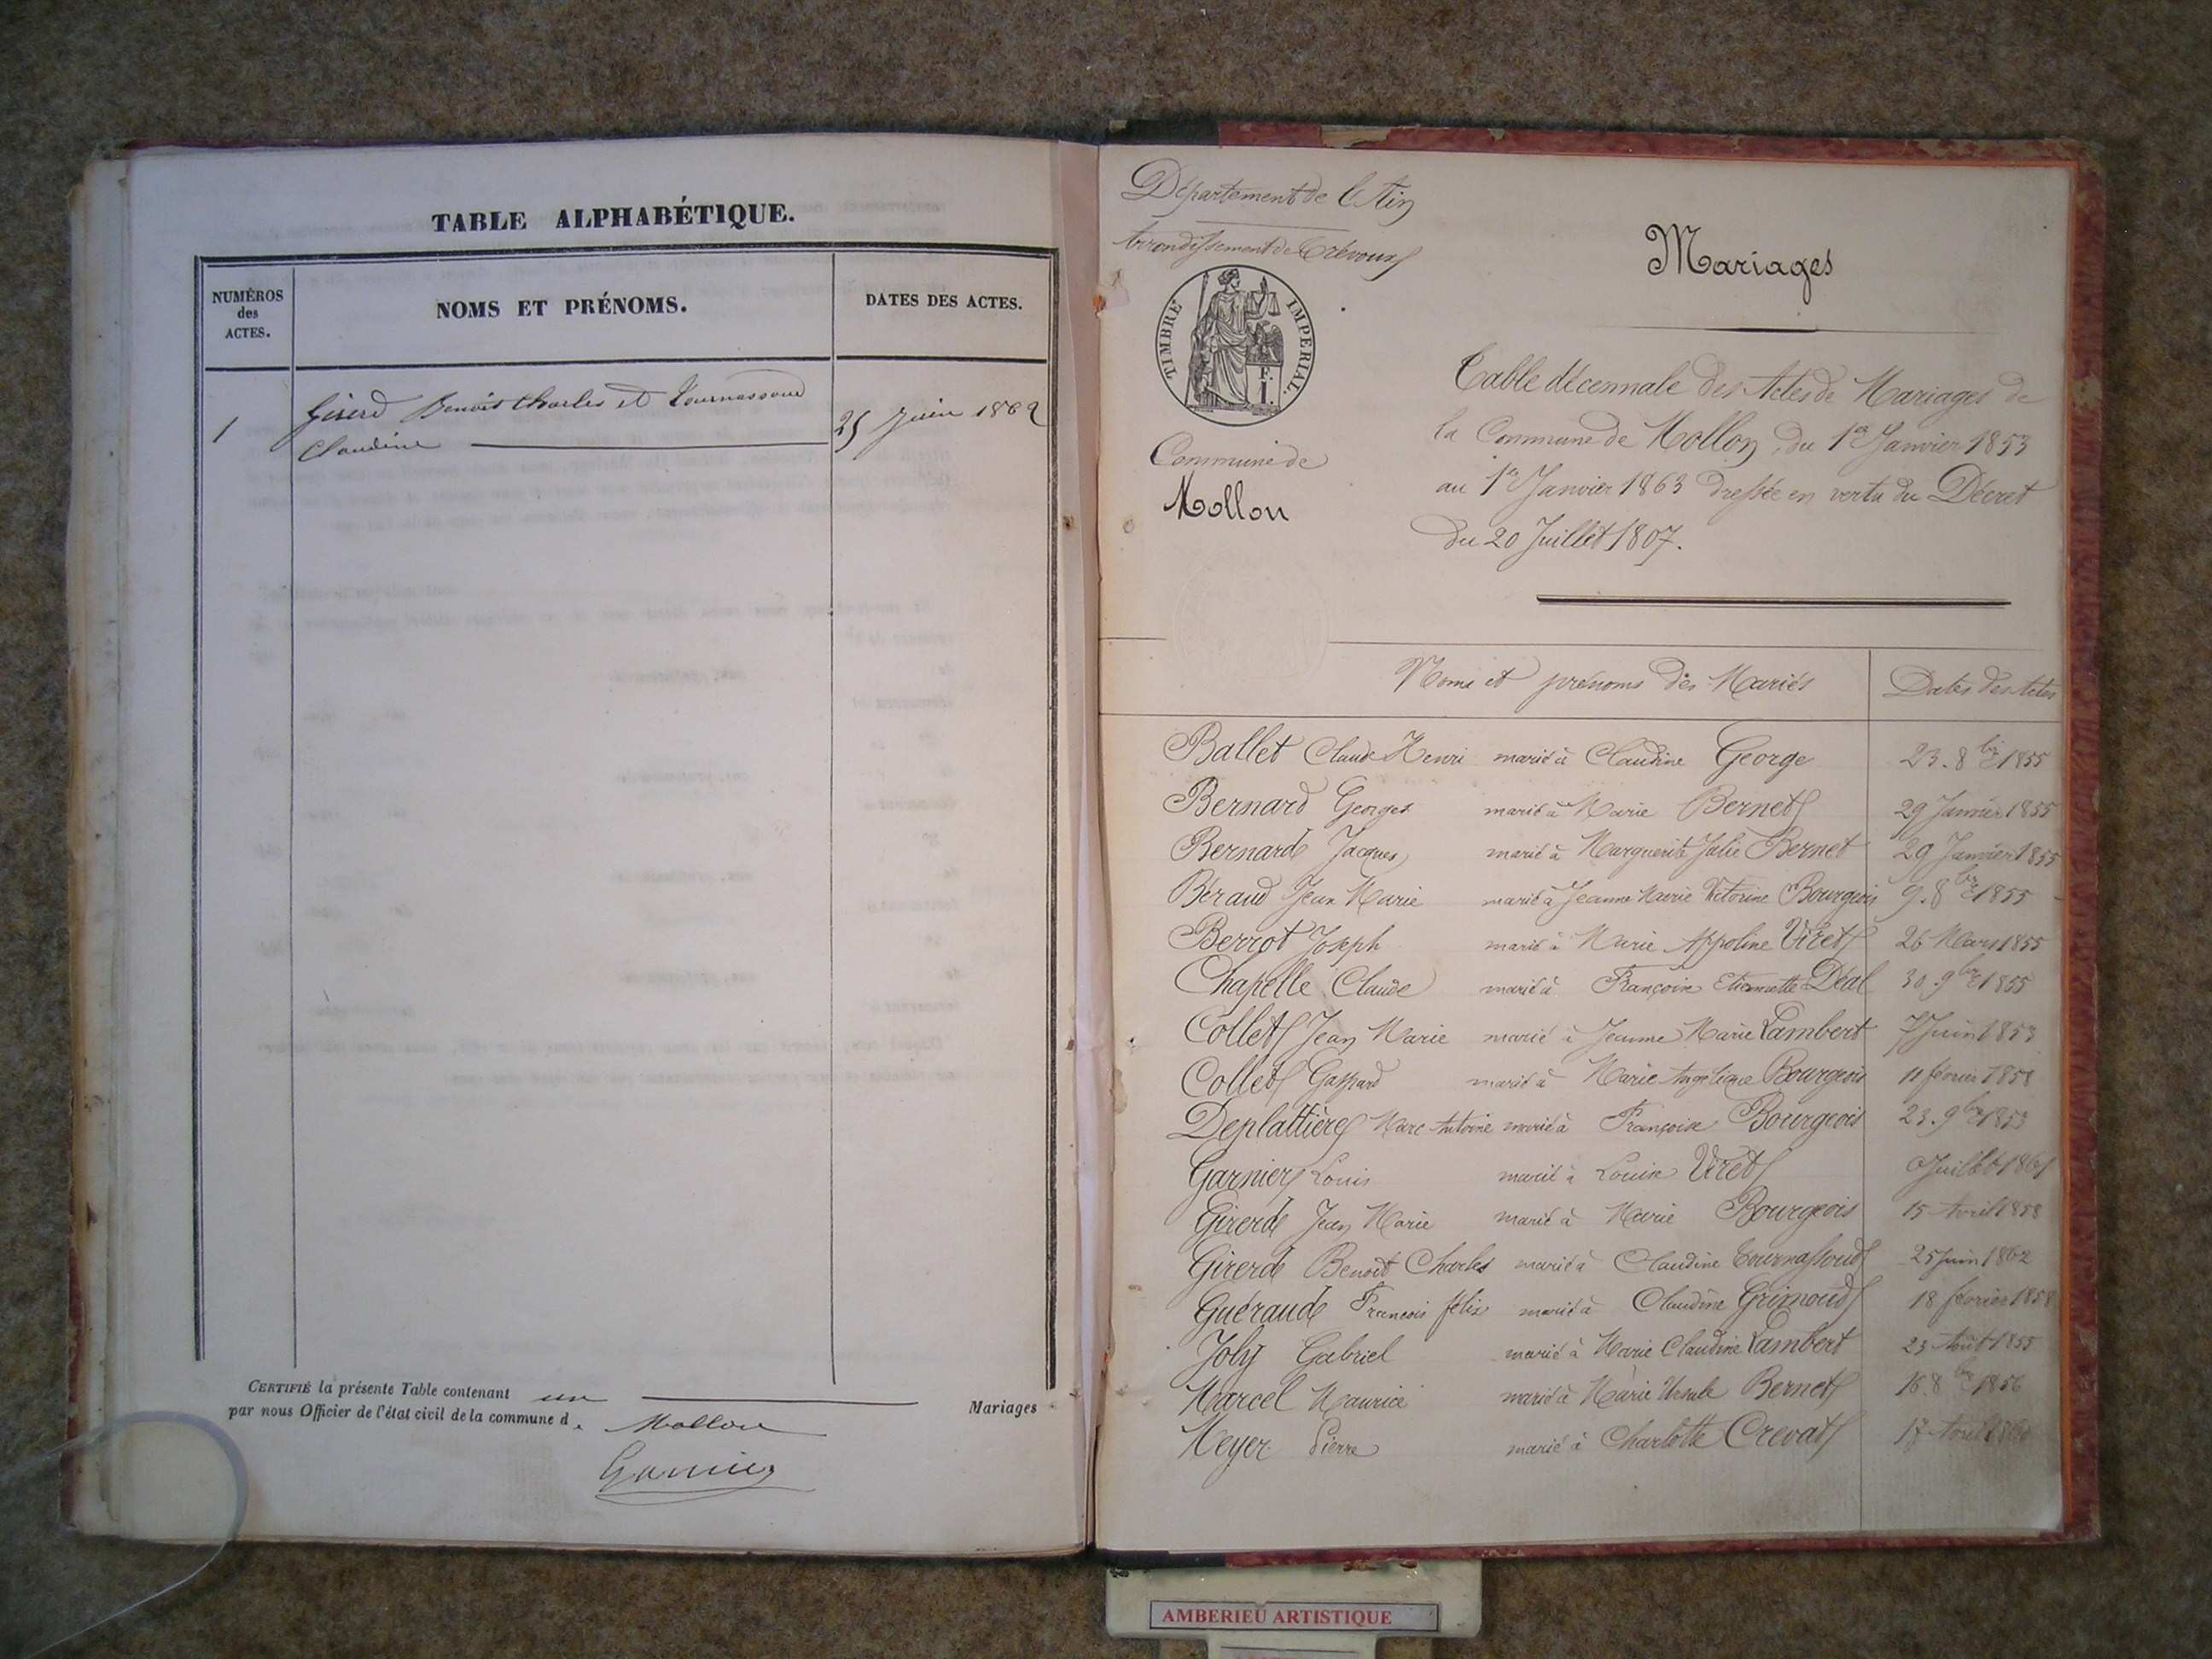 TABLE ALPHABÉTIQUE.
NUMÉROS des ACTES.
NOMS ET PRÉNOMS.
DATES DES ACTES.
1
Girerd Benoit Charles et Tournassoud
Claudine
25 Juin 1862
CERTIFIÉ la présente Table contenant un Mariages
par nous Officier de l'état civil de la commune d. Mollon
Garnier
Département de l'Ain
Arrondissement de Trévoux
TIMBRE IMPERIAL.
Commune de
Mollon
Mariages
Table décennale des Actes de Mariages de
la Commune de Mollon, du 1er Janvier 1853
au 1er Janvier 1863 dressée en vertu du Décret
du 20 Juillet 1807.
Noms et prénoms des Mariés
Dates des Actes
Ballet Claude Henri marié à Claudine George 23. 8bre 1855
Bernard Georges marié à Marie Bernet 29 Janvier 1855
Bernard Jacques marié à Marguerite Julie Bernet 29 Janvier 1855
Béraud Jean Marie marié à Jeanne Marie Victorine Bourgeois 9. 8bre 1855
Berrot Joseph marié à Marie Appoline Viret 26 Mars 1855
Chapelle Claude marié à Françoise Etiennette Déal 30. 9bre 1855
Collet Jean Marie marié à Jeanne Marie Lambert 7 Juin 1853
Collet Gaspard marié à Marie Angelique Bourgeois 11 février 1858
Deplattière Marc Antoine marié à Françoise Bourgeois 23. 9bre 1853
Garnier Louis marié à Louise Viret Juillet 1861
Girerd Jean Marie marié à Marie Bourgeois 15 Avril 1858
Girerd Benoit Charles marié à Claudine Tournassoud 25 Juin 1862
Guéraud Francois félix marié à Claudine Grimoud 18 février 1858
Joly Gabriel marié à Marie Claudine Lambert 23 Août 1855
Marcel Maurice marié à Marie Ursule Bernet 16. 8bre 1856
Meyer Pierre marié à Charlotte Crevat 17 Avril
AMBERIEU ARTISTIQUE